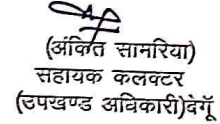 (अंकित सामरिया)
सहायक कलक्टर
(उपखण्ड अधिकारी)वेगूँ